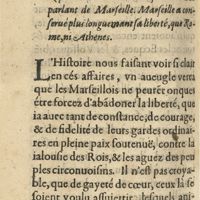 parlant de Marseille. Marseille a con-
serué plus longuement sa liberté, que Ro-
me, ni Athenes.
L'Histoire nous faisant voir si clair
en cés affaires, vn aueugle verra
que les Marseillois ne peurẽt onques
étre forcez d'abãdoner la liberté, que
ia auec tant de constance, de courage,
& de fidelité de leurs gardes ordinai-
res en pleine paix soutenuë, contre la
ialousie des Rois, & les aguez des peu
ples circonuoisins. Il n'est pas croya-
ble, que de gayeté de cœur, ceux là se
soient voulu assuiettir, lesquels ani-